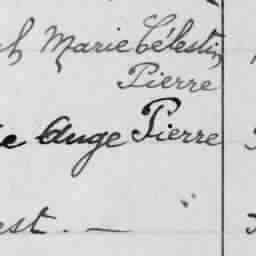 h Marie Célestin
Pierre
e Ange Pierre
est. —